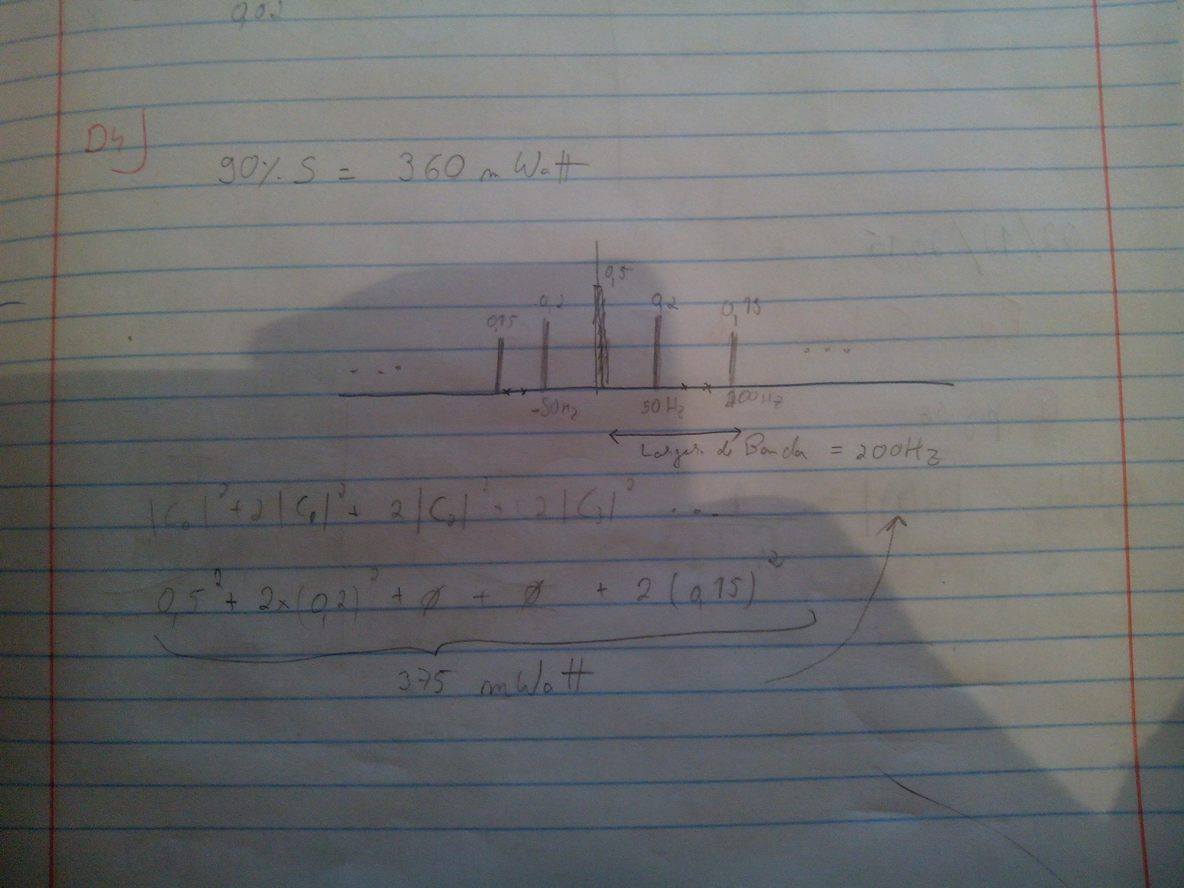 0,02
D4)
90% S = 360 mWatt
0,5
0,15 0,2 0,2 0,15
... ...
-50Hz 50Hz 200Hz
Largura de Banda = 200Hz
|C₀|² + 2|C₁|² + 2|C₂|² + 2|C₃|² ...
0,5² + 2×(0,2)² + ∅ + ∅ + 2(0,15)²
375 mWatt